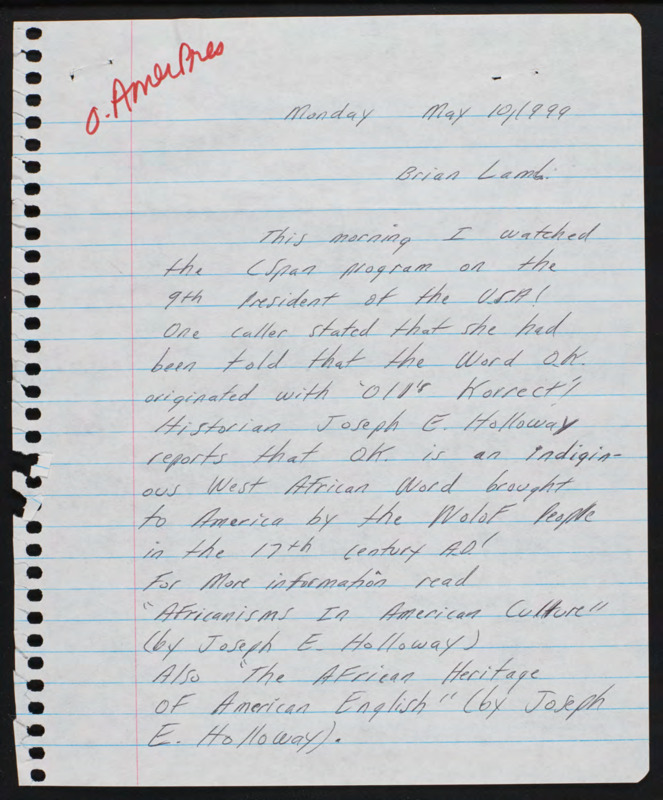 O. AmerPres
Monday May 10, 1999
Brian Lamb:
This morning I watched
the CSpan program on the
9th President of the U.S.A!
One caller stated that she had
been told that the Word O.K.
originated with "Oll's Korrect"!
Historian Joseph E. Holloway
reports that OK. is an indigin-
ous West African Word brought
to America by the Wolof People
in the 17th Century A.D!
For More information read
"Africanisms In American Culture"
(by Joseph E. Holloway)
Also "The African Heritage
Of American English" (by Joseph
E. Holloway).